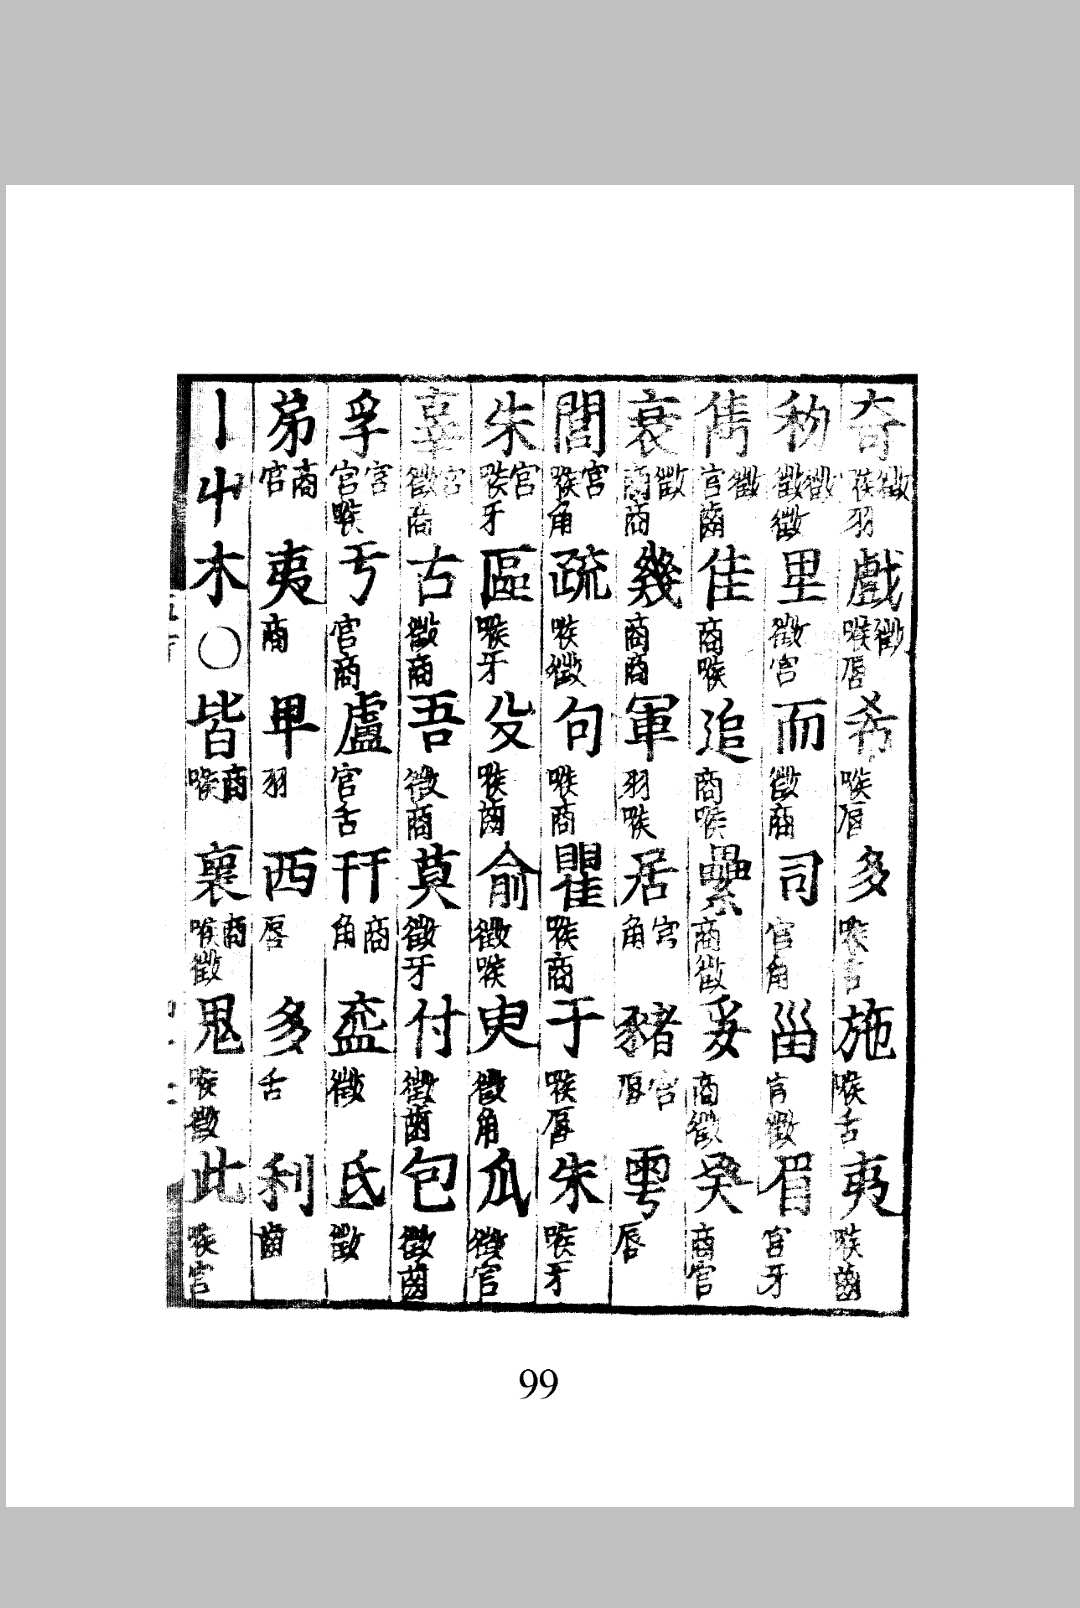 奇喉徵羽戲喉徵唇希喉唇多喉舌施喉舌夷喉齒
秎徵徵徵里徵宫而徵商司宫角甾宫徵眉宫牙
雋宫徵齒隹商喉追商喉纍商徵妥商徵癸商宫
衰商徵商幾商商軍羽喉居角宫豬唇宫雩唇
閭喉宫角疏喉徵句喉商瞿喉商于喉唇朱喉牙
朱喉宫牙區喉牙殳喉齒俞徵喉臾徵角瓜徵宫
辜徵宫商古徵商吾徵商莫徵牙付徵齒包徵齒
孚宫宫喉于宫商盧宫舌幵角商盉徵氐徵
弟宫商夷商卑羽西唇多舌利齒
丨屮木〇皆喉商襄喉商徵鬼喉徵此喉宫
99